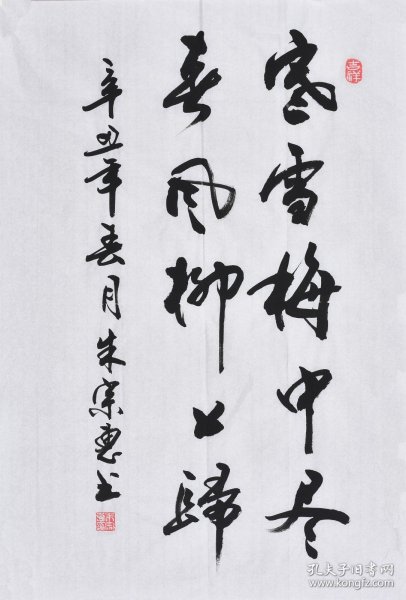 寒雪梅中尽
春风柳上歸
辛丑年春月朱宗惠书
吉祥
孔夫子旧书网